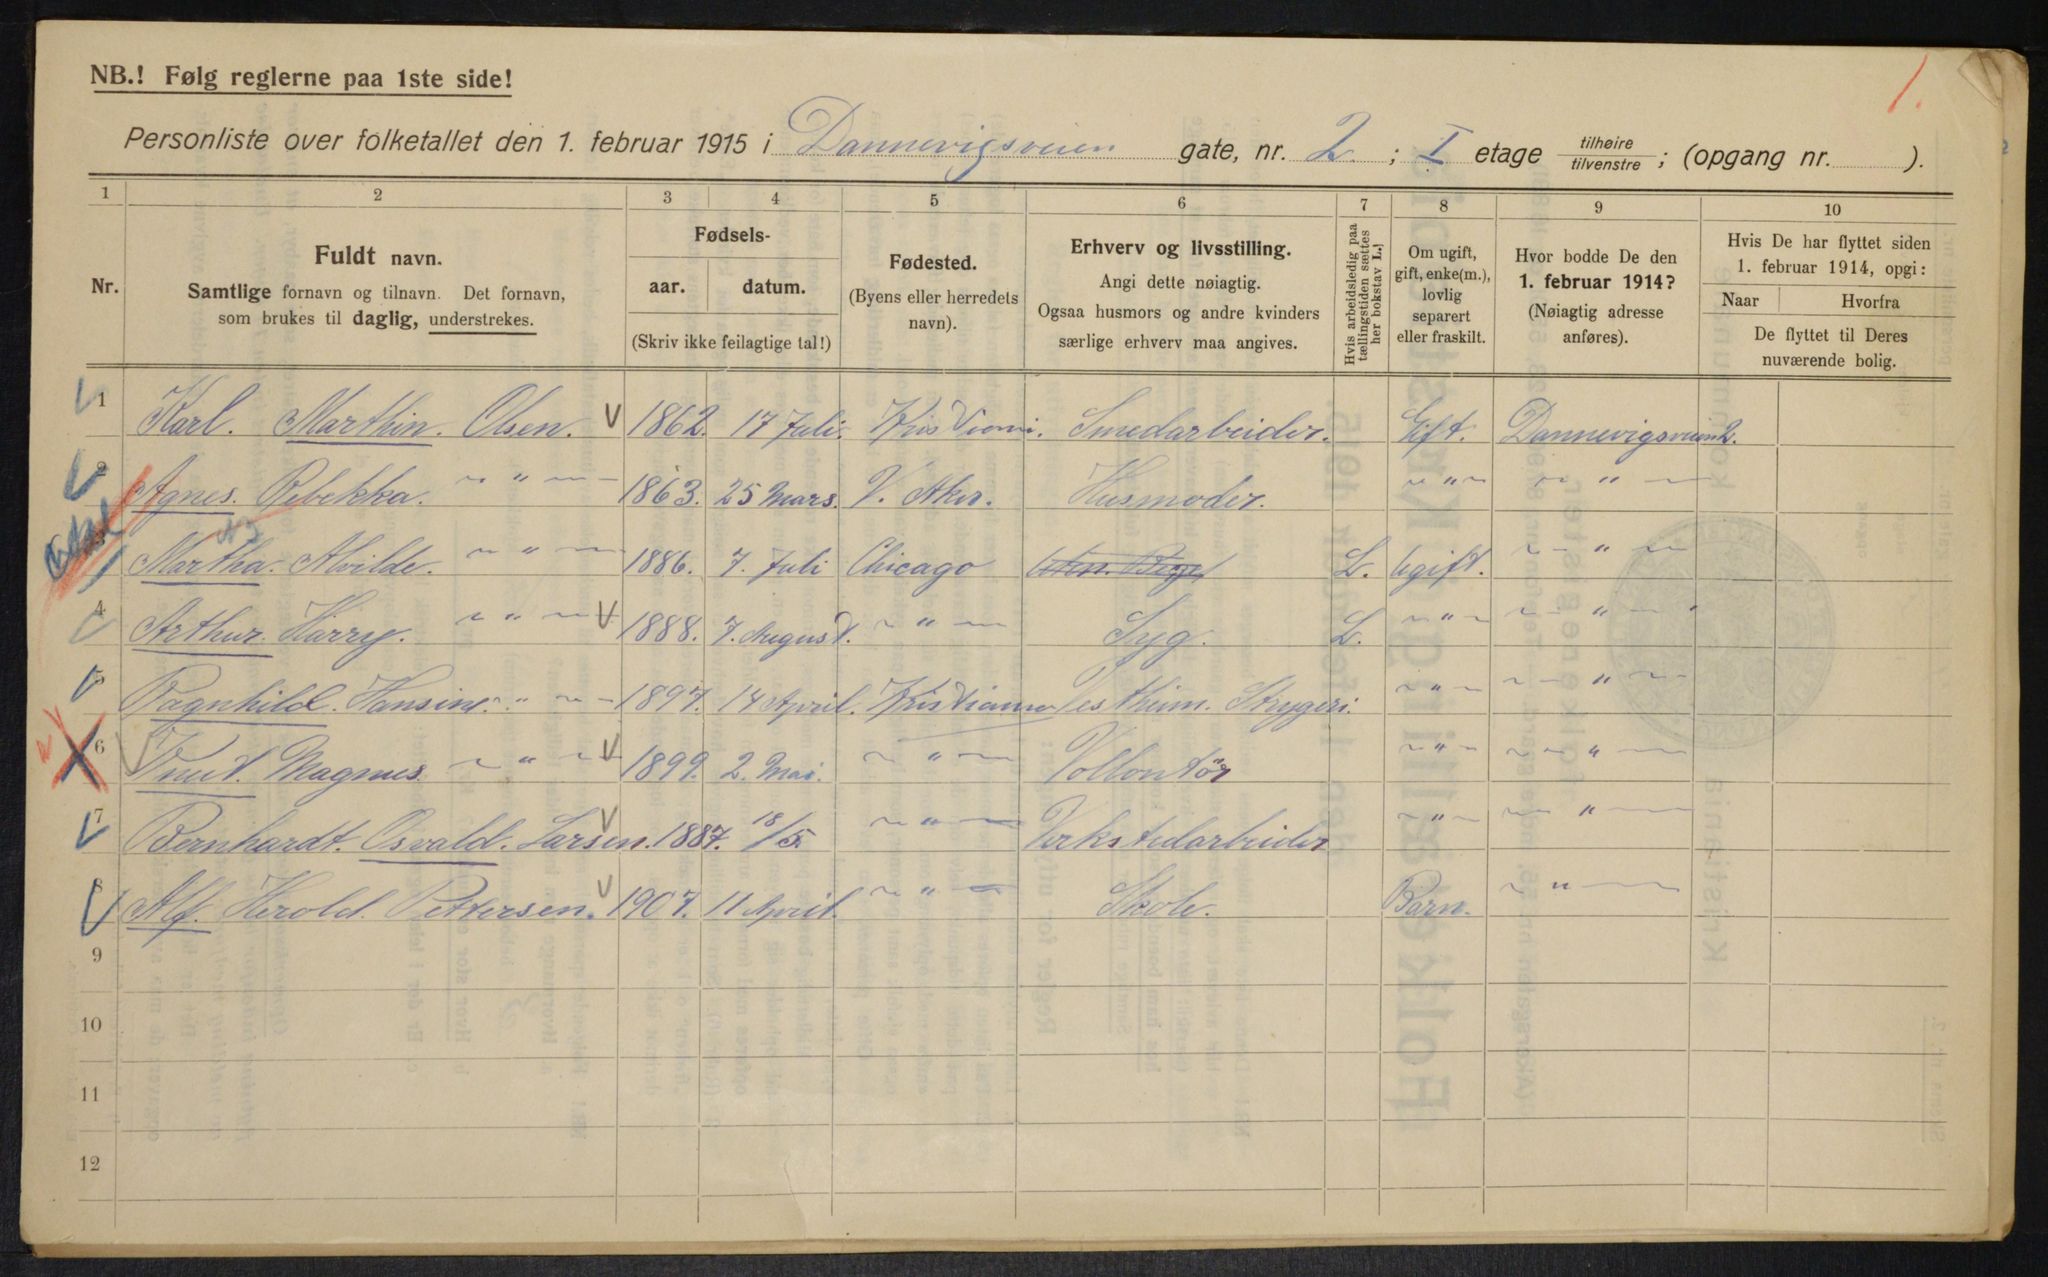 1.
NB.! Følg reglerne paa 1ste side!
Personliste over folketallet den 1. februar 1915 i Dannevigsveien gate, nr. 2. ; I etage tilhøire / tilvenstre ; (opgang nr. ).
1 2 3 4 5 6 7 8 9 10
Nr.
Fuldt navn.
Samtlige fornavn og tilnavn. Det fornavn,
som brukes til daglig, understrekes.
Fødsels-
aar. datum.
(Skriv ikke feilagtige tal!)
Fødested.
(Byens eller herredets
navn).
Erhverv og livsstilling.
Angi dette nøiagtig.
Ogsaa husmors og andre kvinders
særlige erhverv maa angives.
Hvis arbeidsledig paa
tællingstiden sættes
her bokstav L.
Om ugift,
gift, enke(m.),
lovlig
separert
eller fraskilt.
Hvor bodde De den
1. februar 1914?
(Nøiagtig adresse
anføres).
Hvis De har flyttet siden
1. februar 1914, opgi:
Naar Hvorfra
De flyttet til Deres
nuværende bolig.
1 Karl. Marthin. Olsen. 1862. 17 Juli. Kristiania. Smedarbeider. Gift. Dannevigsveien 2.
2 Agnes. Rebekka. " 1863. 25 Mars. V. Aker. Husmoder. " "
3 Martha. Alvilde. " 1886. 7. Juli Chicago L. Ugift. "
4 Arthur. Harry. " 1888. 7. August. " Syg. L. " "
5 Ragnhild. Hansine. " 1897. 14 April. Kristiania Strygeri. " "
6 Knut. Magnus. " 1899. 2. Mai. " Vollontør " "
7 Bernhardt. Osvald. Larsen. 1887. 18/5. " Verkstedarbeider " "
8 Alf. Herold. Pettersen. 1907. 11 April. " Skole. Barn. "
9
10
11
12